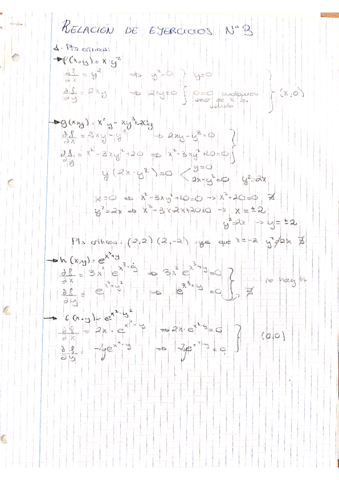 RELACIÓN DE EJERCICIOS Nº 3
1. Pts críticos:
→ f(x,y) = x·y²
∂f/∂x = y² ⇒ y²=0 } y=0
∂f/∂y = 2xy ⇒ 2xy=0 } 0=0 cualquier valor de x es (x,0)
→ g(x,y) = x²y − xy³ + 20y
∂f/∂x = 2xy − y³ ⇒ 2xy − y³ = 0
∂f/∂y = x² − 3xy² + 20 ⇒ x² − 3xy² + 20 = 0
y(2x − y²) = 0 < y=0
2x − y² = 0 y² = 2x
x² − 3xy² + 20 = 0 → x² + 20 = 0 ∄
y² = 2x ⇒ x² − 3x·2x + 20 = 0 → x = ±2
y² = 2x → y = ±2
Pts críticos: (2,2) (2,−2) ya que x = −2 y² ≠ 2x ∄
→ h(x,y) = e^(x³+y)
∂f/∂x = 3x² e^(x³+y) ⇒ 3x² e^(x³+y) = 0
∂f/∂y = e^(x³+y) ⇒ e^(x³+y) = 0 ∄ no hay
(x,y) = e^(x²−y²)
∂f/∂x = 2x · e^(x²−y²) ⇒ 2x · e^(x²−y²) = 0
∂f/∂y = −2y e^(x²−y²) ⇒ (0,0)